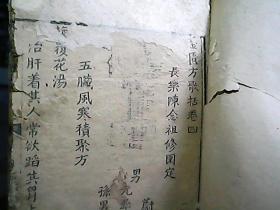 金匱方歌括卷四
長樂陳念祖修園定
男
蔚
元犀
孫男
五臟風寒積聚方
旋覆花湯
治肝着其人常欲蹈其胸